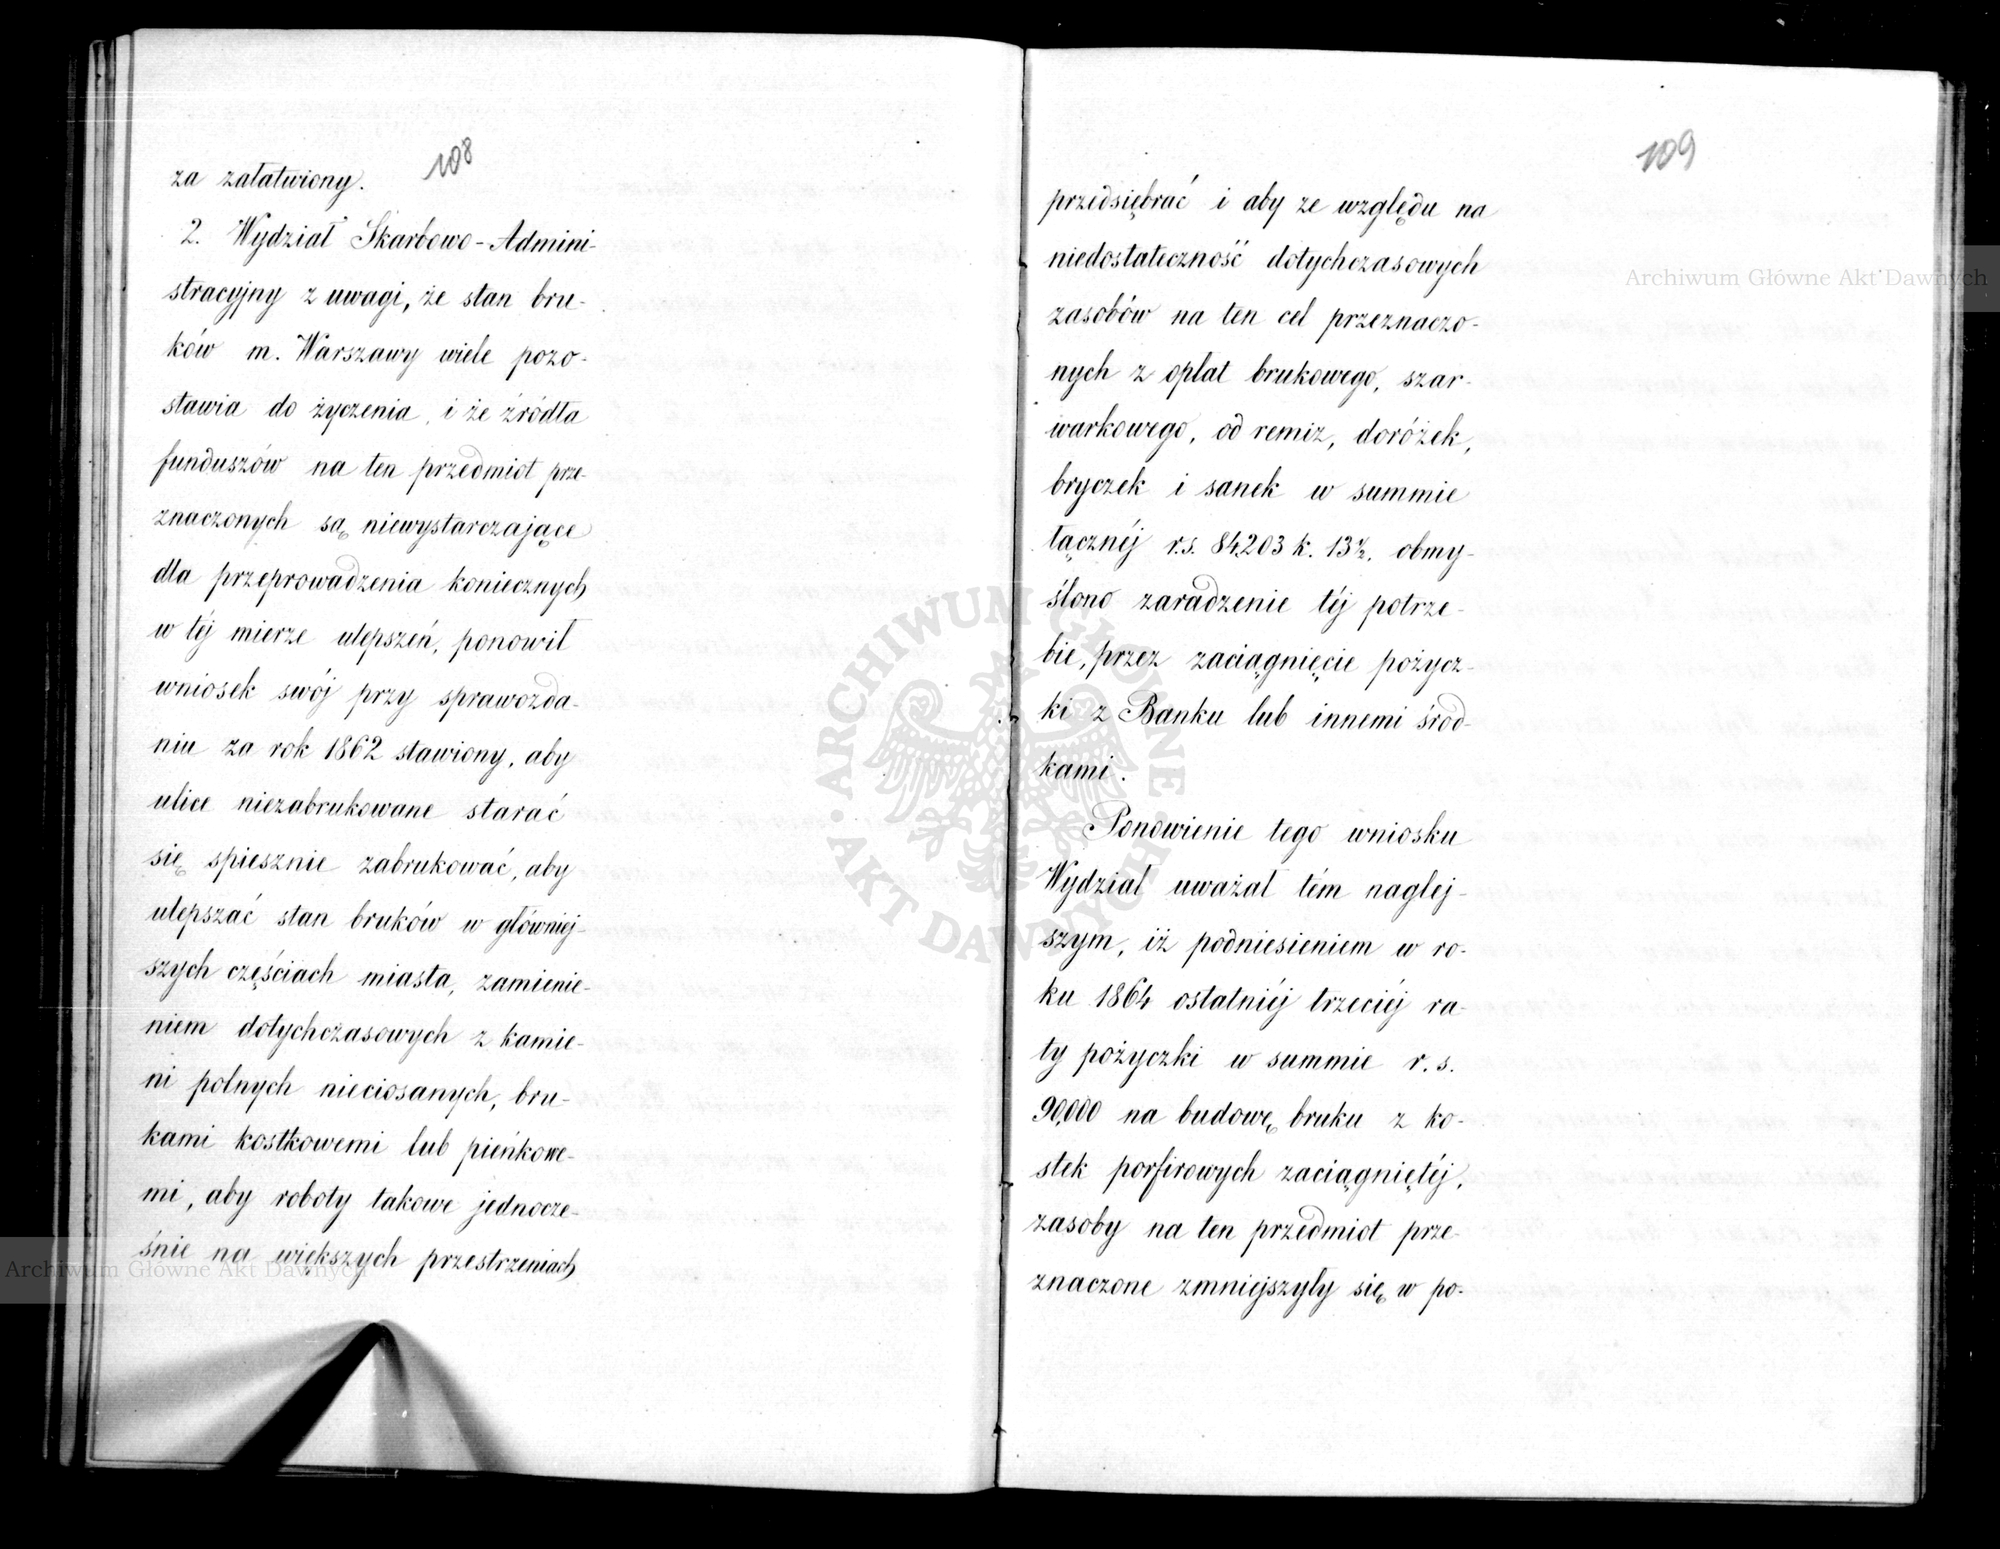 108
za załatwiony.
2. Wydział Skarbowo-Admini-
stracyjny z uwagi, że stan bru-
ków m. Warszawy wiele pozo-
stawia do życzenia, i że źródła
funduszów na ten przedmiot prze-
znaczonych są niewystarczające
dla przeprowadzenia koniecznych
w téj mierze ulepszeń, ponowił
wniosek swój przy sprawozda-
niu za rok 1862 stawiony, aby
ulice niezabrukowane starać
się spiesznie zabrukować, aby
ulepszać stan bruków w główniej-
szych częściach miasta, zamienie-
niem dotychczasowych z kamie-
ni polnych nieciosanych, bru-
kami kostkowemi lub pieńkowe-
mi, aby roboty takowe jednocze-
śnie na większych przestrzeniach
109
przedsiębrać i aby ze względu na
niedostateczność dotychczasowych
zasobów na ten cel przeznaczo-
nych z opłat brukowego, szar-
warkowego, od remiz, doróżek,
bryczek i sanek w summie
łącznéj r.s. 84,203 k. 13½. obmy-
ślono zaradzenie téj potrze-
bie, przez zaciągnięcie pożycz-
ki z Banku lub innemi środ-
kami.
Ponowienie tego wniosku
Wydział uważał tém naglej-
szym, iż podniesieniem w ro-
ku 1864 ostatniéj trzeciéj ra-
ty pożyczki w summie r.s.
90,000 na budowę bruku z ko-
stek porfirowych zaciągniętéj,
zasoby na ten przedmiot prze-
znaczone zmniejszyły się w po-
Archiwum Główne Akt Dawnych
Archiwum Główne Akt Dawnych
ARCHIWUM GŁÓWNE AKT DAWNYCH